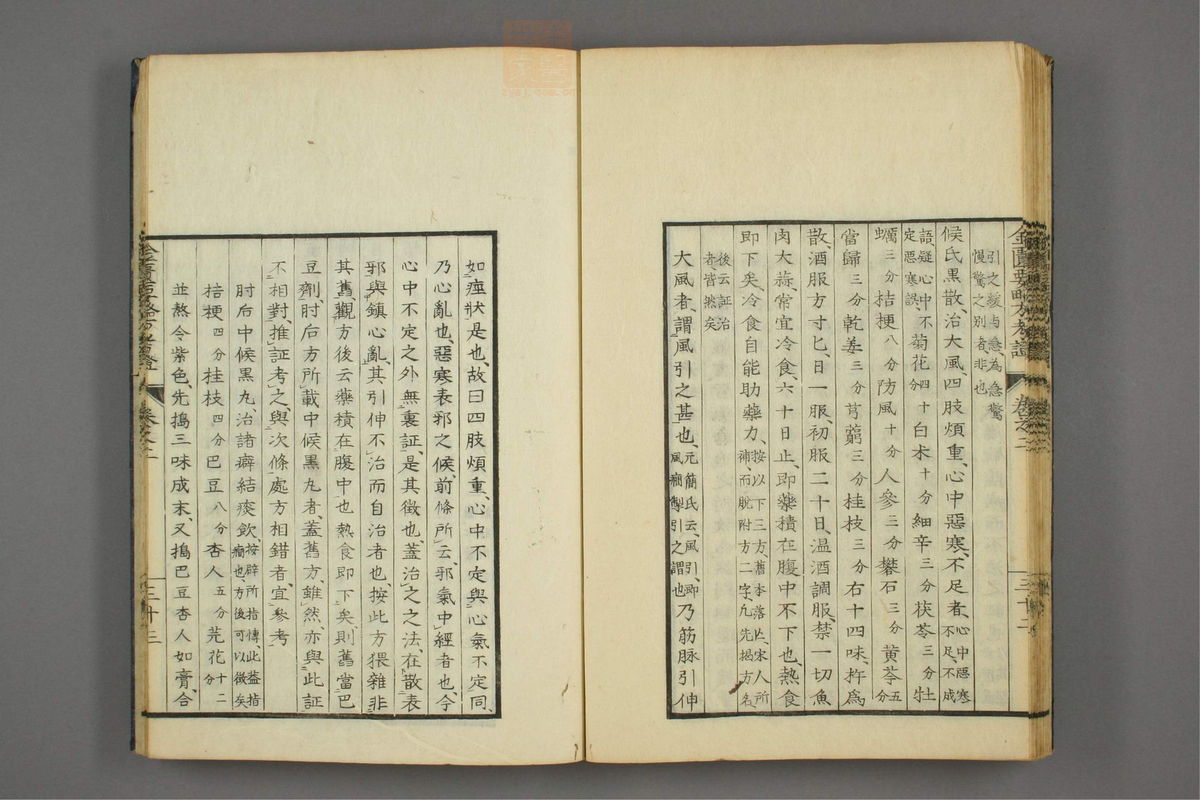 引之緩与急為急驚
慢驚之別者非也
候氏黒散、治大風、四肢煩重、心中惡寒、不足者、心中惡寒不足、不成
語、疑心中、不定惡寒誤、菊花四十分白朮十分細辛三分茯苓三分牡
蠣三分桔梗八分防風十分人參三分礬石三分黄芩五分
當歸三分乾姜三分芎藭三分桂枝三分右十四味、杵為
散、酒服方寸匕、日一服、初服二十日、温酒調服、禁一切魚
肉大蒜、常宜冷食、六十日止、即藥積在腹中不下也、熱食
即下矣、冷食自能助藥力、按以下三方、舊本落丛、宋人所補、而脫附方二字、凢先揭方名
後云証治者皆然矣
大風者、謂風引之甚也、元簡氏云、風引、即風癇掣引之謂也乃筋脉引伸
如痙狀是也、故曰四肢煩重、心中不定、與心氣不定同、
乃心亂也、惡寒表邪之候、前條所云、邪氣中經者也、今
心中不定之外、無裏証、是其徵也、蓋治之之法、在散表
邪與鎮心亂、其引伸不治而自治者也、按此方猥雜非
其舊、觀方後云藥積在腹中也、熱食即下矣、則舊當巴
豆劑、肘后方所載中候黒丸者、蓋舊方、雖然、亦與此証
不相對、推証考之、與次條處方相錯者、宜參考
肘后中候黒丸、治諸癖結痰飲、按辟所指慱、此葢指癇也、方後可以徵矣
桔梗四分桂枝四分巴豆八分杏人五分芫花十二分
並熬令紫色、先搗三味成末、又搗巴豆杏人如膏、合
金匱要略方考證
卷之二
三十二
三十三